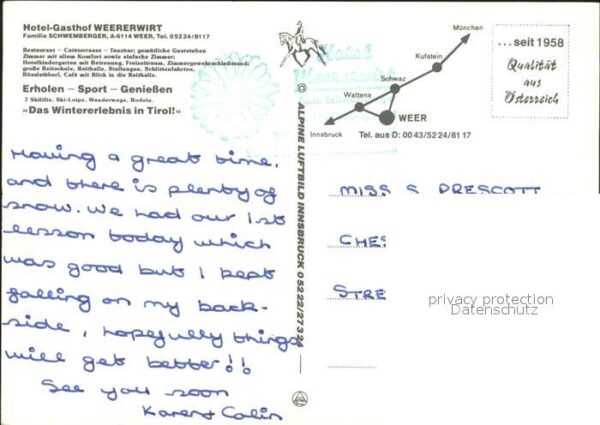 Hotel-Gasthof WEERERWIRT
Familie SCHWEMBERGER, A-6114 WEER, Tel. 05224/8117
Restaurant – Caféterrasse – Tanzbar; gemütliche Gaststuben
Zimmer mit allem Komfort sowie einfache Zimmer;
Hotelkindergarten mit Betreuung, Freizeitraum, Zimmergewehrschießstand;
große Reitschule, Reithalle, Stallungen, Schlittenfahrten.
Rösslstüberl, Café mit Blick in die Reithalle.
Erholen – Sport – Genießen
7 Skilifte, Ski-Loipe, Wanderwege, Rodeln.
»Das Wintererlebnis in Tirol!«
Having a great time,
and there is plenty of
snow. We had our 1st
lesson today which
was good but I kept
falling on my back-
side, hopefully things
will get better!!
See you soon
Karen & Colin
© ALPINE LUFTBILD INNSBRUCK 05222/27324
Hotel
Weererwirt
Fam. Schwemberger
München
Kufstein
Schwaz
Wattens
WEER
Innsbruck
Tel. aus D: 0043/5224/8117
...seit 1958
Qualität
aus
Österreich
MISS S PRESCOTT
CHES
STRE
privacy protection
Datenschutz